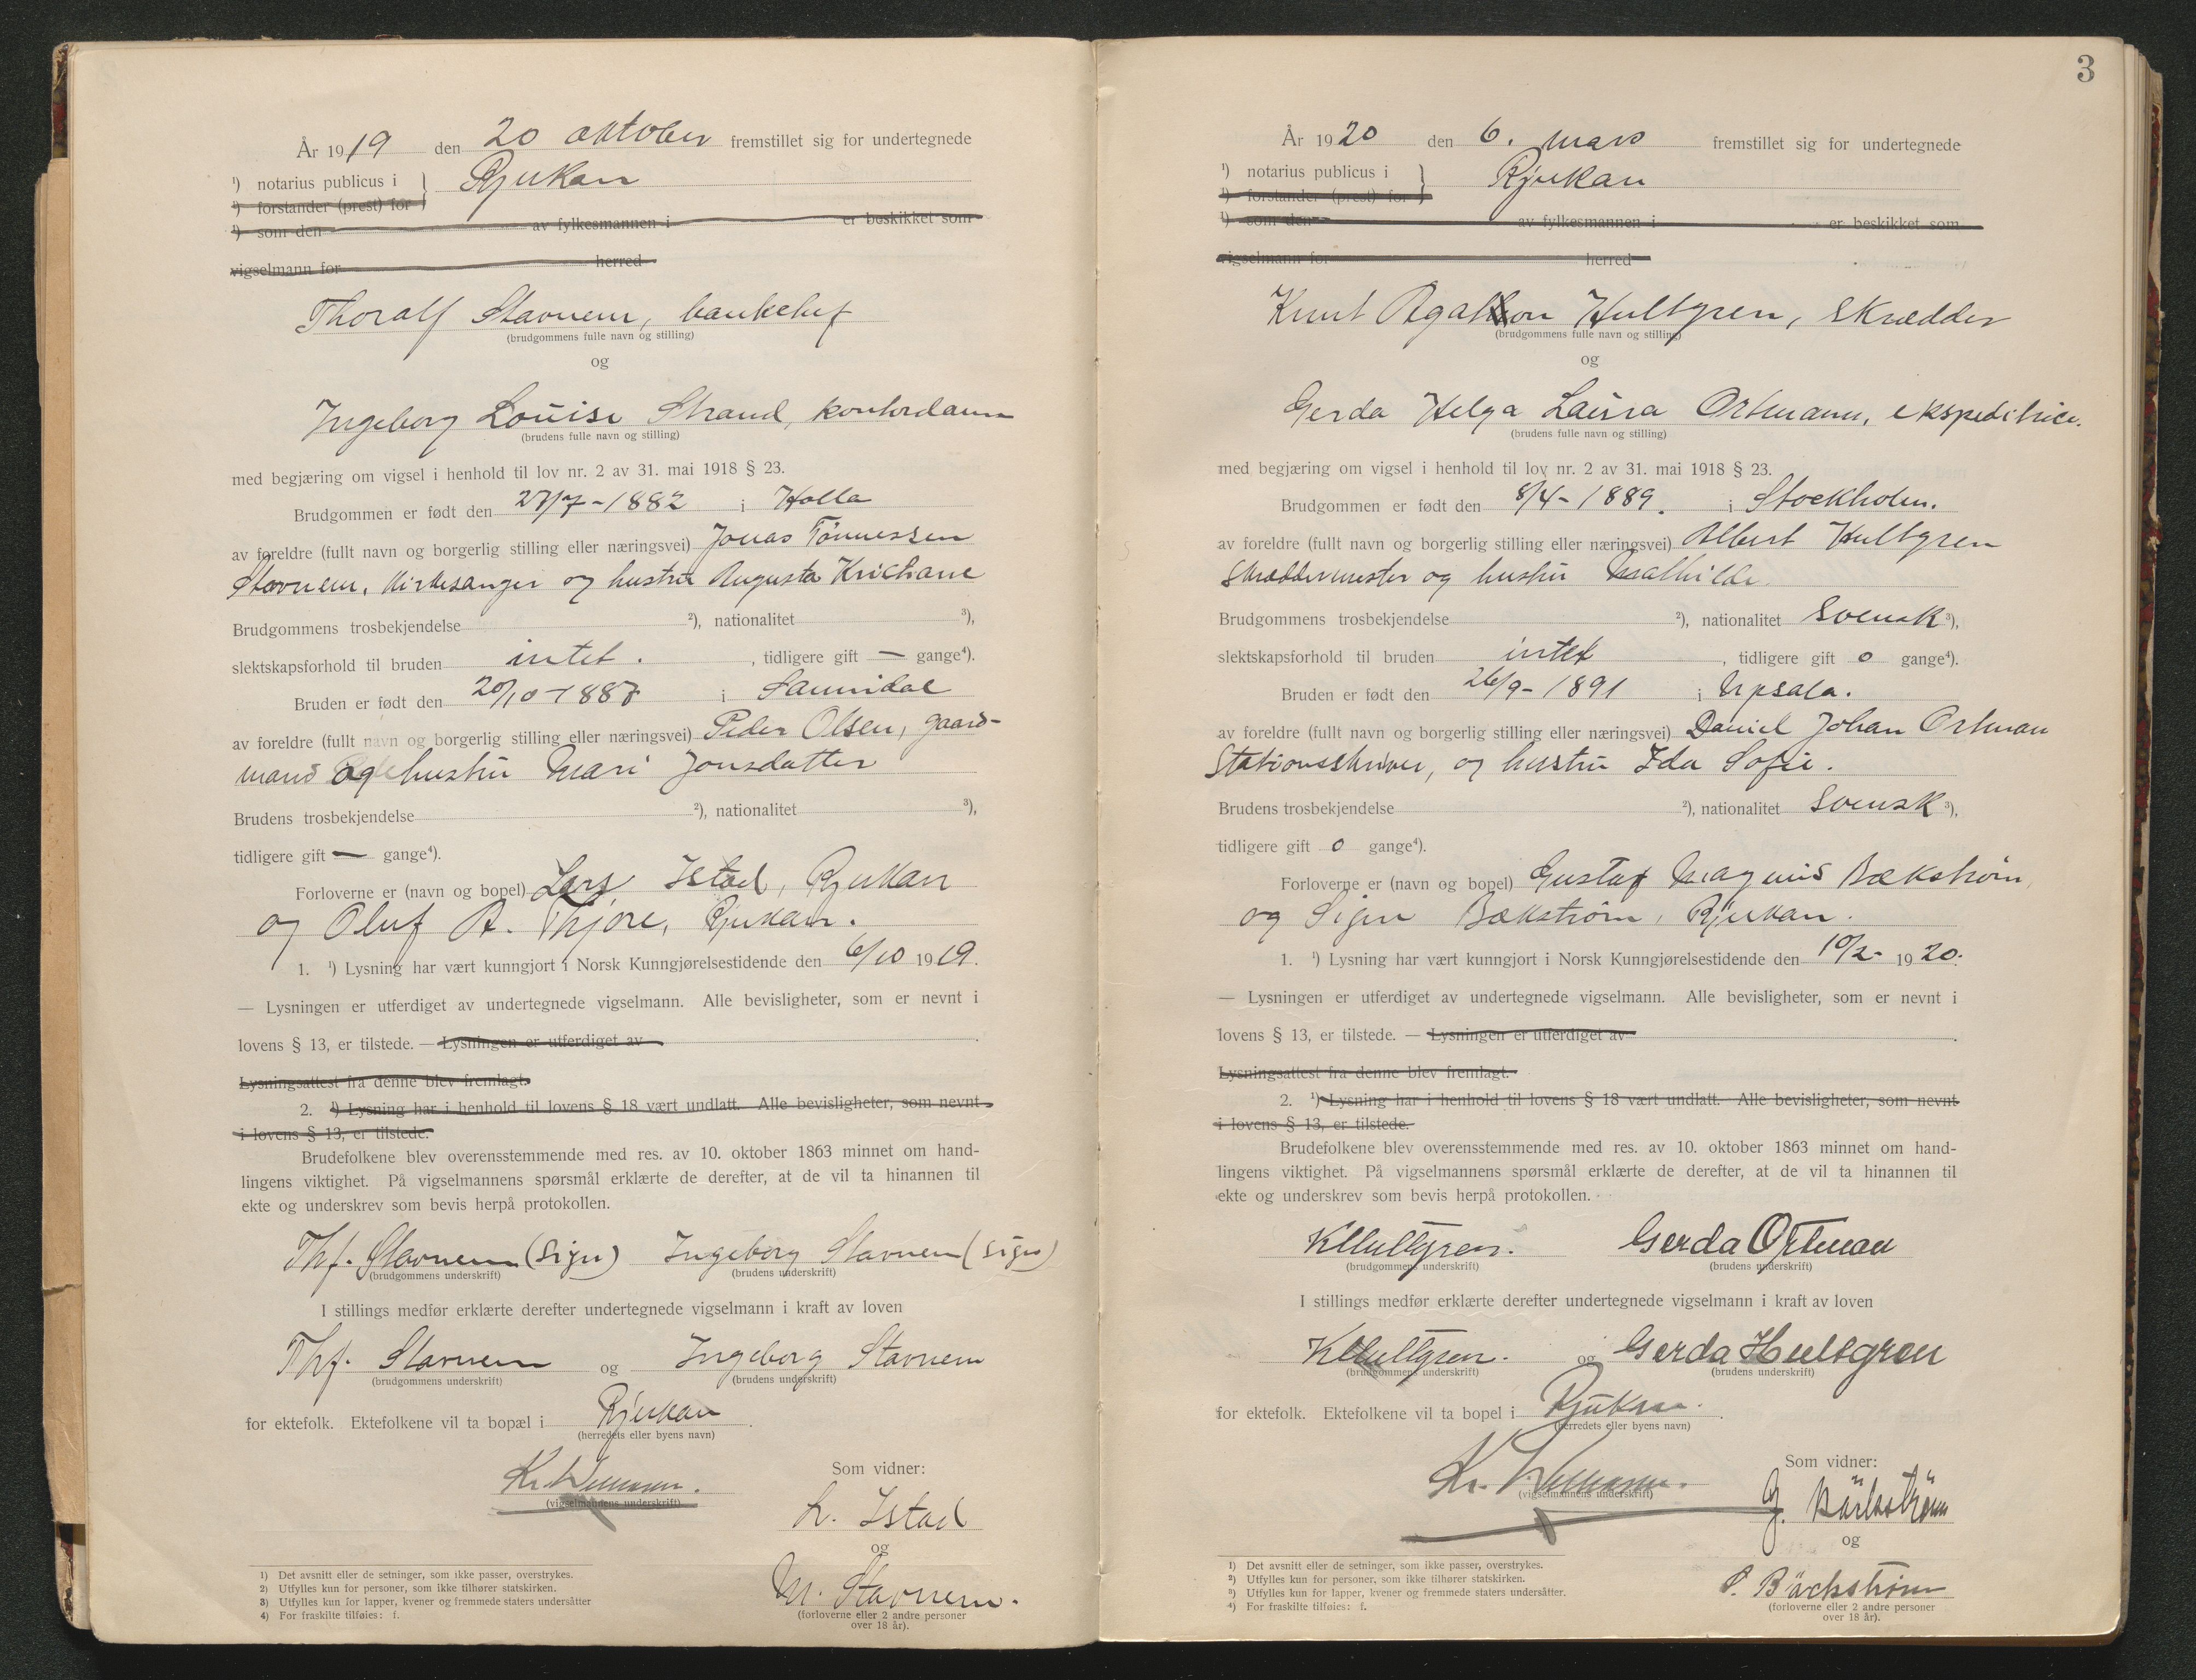 År 1919 den 20 oktober fremstillet sig for undertegnede
¹) notarius publicus i } Rjukan
¹) forstander (prest) for
¹) som den av fylkesmannen i er beskikket som
vigselmann for herred
Thoralf Stavnem, bankchef
(brudgommens fulle navn og stilling)
og
Ingeborg Louise Strand, kontordame
(brudens fulle navn og stilling)
med begjæring om vigsel i henhold til lov nr. 2 av 31. mai 1918 § 23.
Brudgommen er født den 27/7-1882 i Holla
av foreldre (fullt navn og borgerlig stilling eller næringsvei) Jonas Tönnessen
Stavnem, kirkesanger og hustru Augusta Kristiane
Brudgommens trosbekjendelse ²), nationalitet ³),
slektskapsforhold til bruden intet. , tidligere gift — gange⁴).
Bruden er født den 20/10-1887 i Sannidal
av foreldre (fullt navn og borgerlig stilling eller næringsvei) Peder Olsen, gaard-
mand og hustru Mari Jonsdatter
Brudens trosbekjendelse ²), nationalitet ³),
tidligere gift — gange⁴).
Forloverne er (navn og bopel) Lars Istad, Rjukan
og Oluf A. Thjore, Rjukan.
1. ¹) Lysning har vært kunngjort i Norsk Kunngjørelsestidende den 6/10 1919.
— Lysningen er utferdiget av undertegnede vigselmann. Alle bevisligheter, som er nevnt i
lovens § 13, er tilstede. — Lysningen er utferdiget av .
Lysningsattest fra denne blev fremlagt.
2. ¹) Lysning har i henhold til lovens § 18 vært undlatt. Alle bevisligheter, som nevnt
i lovens § 13, er tilstede.
Brudefolkene blev overensstemmende med res. av 10. oktober 1863 minnet om hand-
lingens viktighet. På vigselmannens spørsmål erklærte de derefter, at de vil ta hinannen til
ekte og underskrev som bevis herpå protokollen.
Thf. Stavnem (sign) Ingeborg Stavnem (sign)
(brudgommens underskrift) (brudens underskrift)
I stillings medfør erklærte derefter undertegnede vigselmann i kraft av loven
Thf. Stavnem og Ingeborg Stavnem
(brudgommens underskrift) (brudens underskrift)
for ektefolk. Ektefolkene vil ta bopæl i Rjukan .
(herredets eller byens navn)
Kr.
(vigselmannens underskrift)
Som vidner:
L. Istad
og
M. Stavnem.
(forloverne eller 2 andre personer
over 18 år).
1) Det avsnitt eller de setninger, som ikke passer, overstrykes.
2) Utfylles kun for personer, som ikke tilhører statskirken.
3) Utfylles kun for lapper, kvener og fremmede staters undersåtter
4) For fraskilte tilføies: f.
3
År 1920 den 6. mars fremstillet sig for undertegnede
¹) notarius publicus i } Rjukan
¹) forstander (prest) for
¹) som den av fylkesmannen i er beskikket som
vigselmann for herred
Knut Agaton Hultgren, skrædder
(brudgommens fulle navn og stilling)
og
Gerda Helga Laura Ortmann, ekspeditrice.
(brudens fulle navn og stilling)
med begjæring om vigsel i henhold til lov nr. 2 av 31. mai 1918 § 23.
Brudgommen er født den 8/4-1889. i Stockholm.
av foreldre (fullt navn og borgerlig stilling eller næringsvei) Albert Hultgren
Skræddermester og hustru Mathilde.
Brudgommens trosbekjendelse ²), nationalitet Svensk ³),
slektskapsforhold til bruden intet , tidligere gift 0 gange⁴).
Bruden er født den 26/9-1891 i Upsala.
av foreldre (fullt navn og borgerlig stilling eller næringsvei) Daniel Johan Ortman
Stationsskriver, og hustru Ida Sofie.
Brudens trosbekjendelse ²), nationalitet Svensk ³),
tidligere gift 0 gange⁴).
Forloverne er (navn og bopel) Gustaf Magnus Bækstrøm,
og Signe Bækstrøm, Rjukan.
1. ¹) Lysning har vært kunngjort i Norsk Kunngjørelsestidende den 10/2- 1920.
— Lysningen er utferdiget av undertegnede vigselmann. Alle bevisligheter, som er nevnt i
lovens § 13, er tilstede. — Lysningen er utferdiget av .
Lysningsattest fra denne blev fremlagt.
2. ¹) Lysning har i henhold til lovens § 18 vært undlatt. Alle bevisligheter, som nevnt
i lovens § 13, er tilstede.
Brudefolkene blev overensstemmende med res. av 10. oktober 1863 minnet om hand-
lingens viktighet. På vigselmannens spørsmål erklærte de derefter, at de vil ta hinannen til
ekte og underskrev som bevis herpå protokollen.
KHultgren. Gerda Ortman
(brudgommens underskrift) (brudens underskrift)
I stillings medfør erklærte derefter undertegnede vigselmann i kraft av loven
KHultgren. og Gerda Hultgren
(brudgommens underskrift) (brudens underskrift)
for ektefolk. Ektefolkene vil ta bopel i Rjukan.
(herredets eller byens navn)
Kr.
(vigselmannens underskrift)
Som vidner:
G. Bäckström
og
S. Bäckström
(forloverne eller 2 andre personer
over 18 år).
1) Det avsnitt eller de setninger, som ikke passer, overstrykes.
2) Utfylles kun for personer, som ikke tilhører statskirken.
3) Utfylles kun for lapper, kvener og fremmede staters undersåtter.
4) For fraskilte tilføies: f.